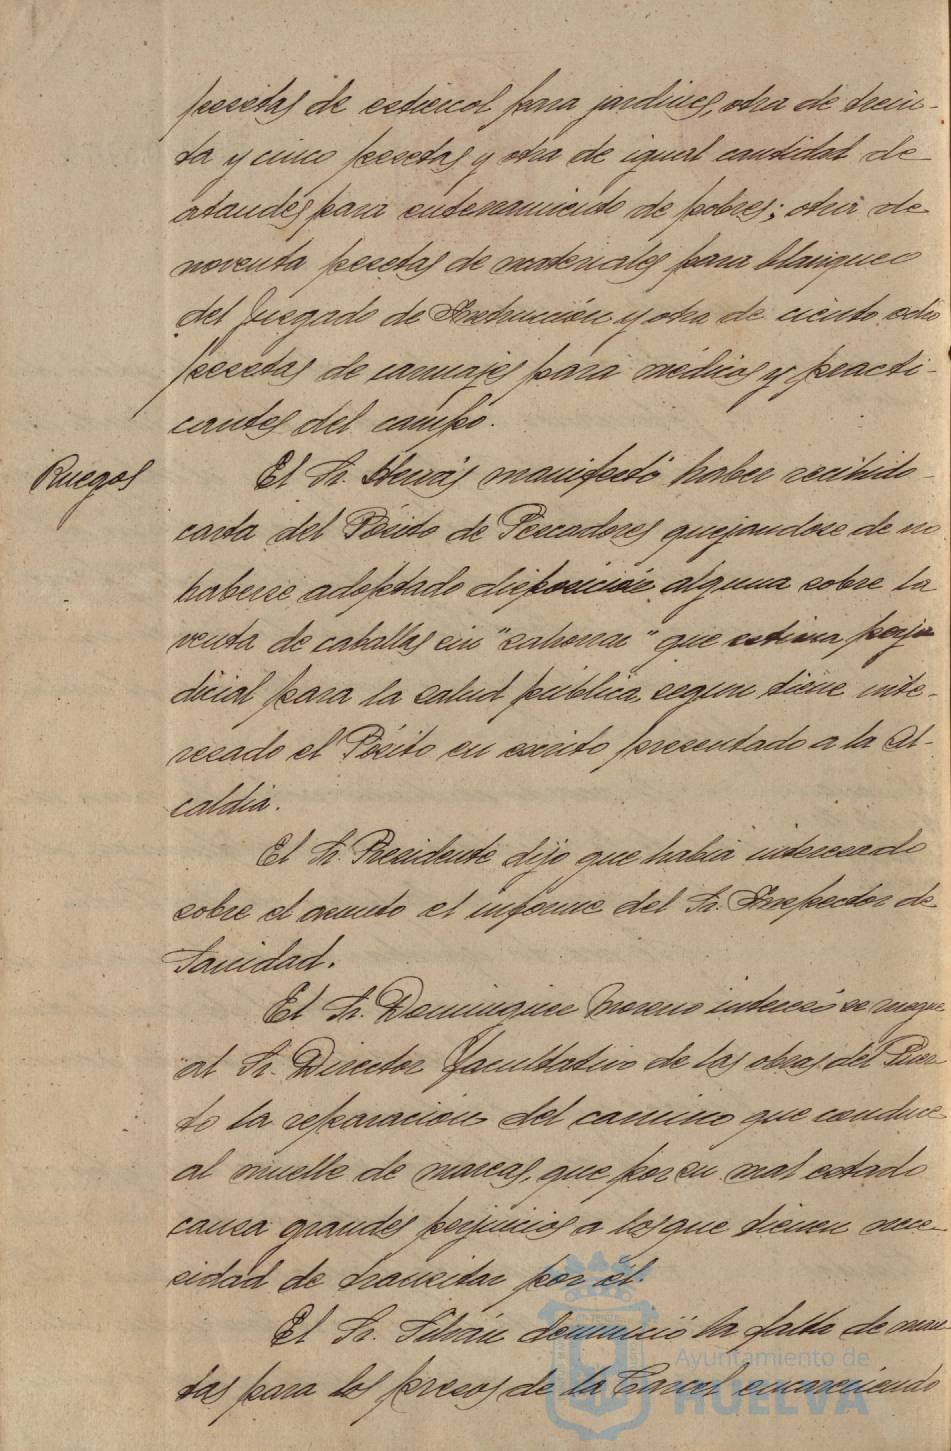 pesetas de estiercol para jardines, otra de trein-
ta y cinco pesetas y otra de igual cantidad de
ataudes para enterramiento de pobres; otra de
noventa pesetas de materiales para blanqueo
del Juzgado de Instrucción y otra de ciento ocho
pesetas de carruajes para médicos y practi-
cantes del campo.
Ruegos
El Sr. manifestó haber recibido
carta del Pósito de Pescadores quejandose de no
haberse adoptado disposición alguna sobre la
venta de caballas sin "salmorar" que estima perju
dicial para la salud pública, segun tiene inte-
resado el Pósito en escrito presentado a la Al-
caldia.
El Sr. Presidente dijo que habia interesado
sobre el asunto el informe del Sr. Inspector de
Sanidad.
El Sr. Dominguez Moreno interesó se ruegue
al Sr. Director Facultativo de las obras del Puer
to la reparacion del camino que conduce
al muelle de mareas, que por su mal estado
causa grandes perjuicios a los que tienen nece-
sidad de transitar por él.
El Sr. denunció la falta de man
tas para los presos de la Carcel encareciendo
Ayuntamiento de
HUELVA